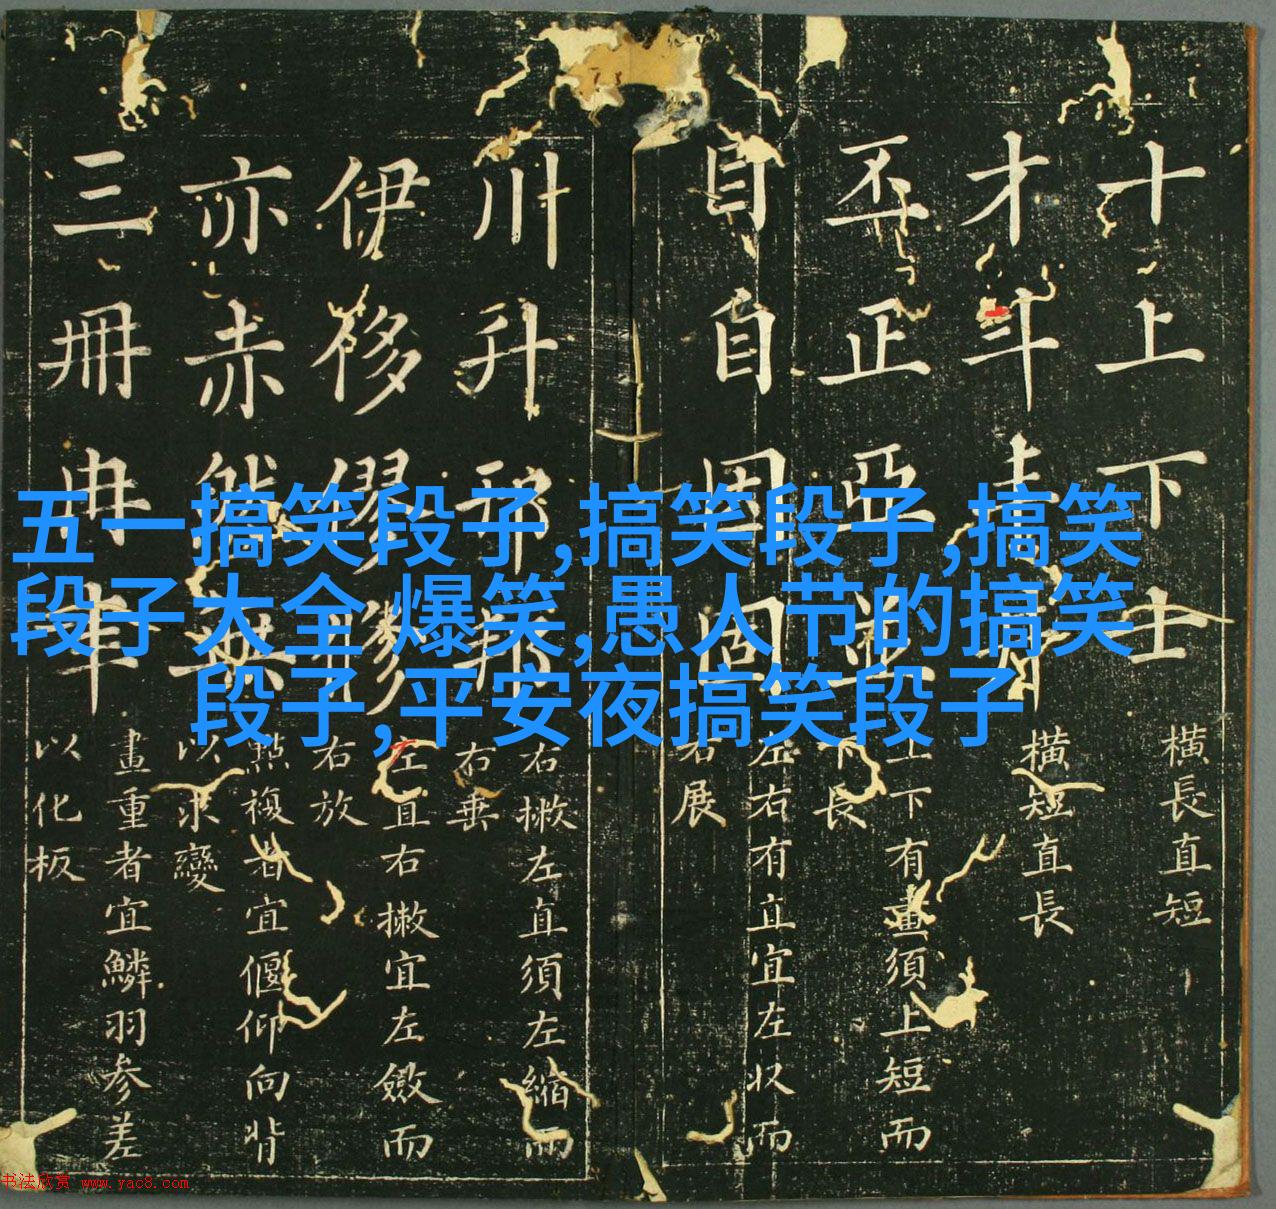 五一搞笑段子,搞笑段子,搞笑
段子大全 爆笑,愚人节的搞笑
段子,平安夜搞笑段子
十上下士
橫長直短
才斗
橫短直長
丕正亞
上下有畫須上短而
下長
目自因固
左右有直宜左收而
右展
川升邪邦
右撇左直須左縮而
右垂
伊侈
左直右撇宜左斂而
右放
亦赤然無
點複者宜偃仰向背
以求變
三冊冉
畫重者宜鱗羽参差
以化板
书法欣赏 www.yac8.com